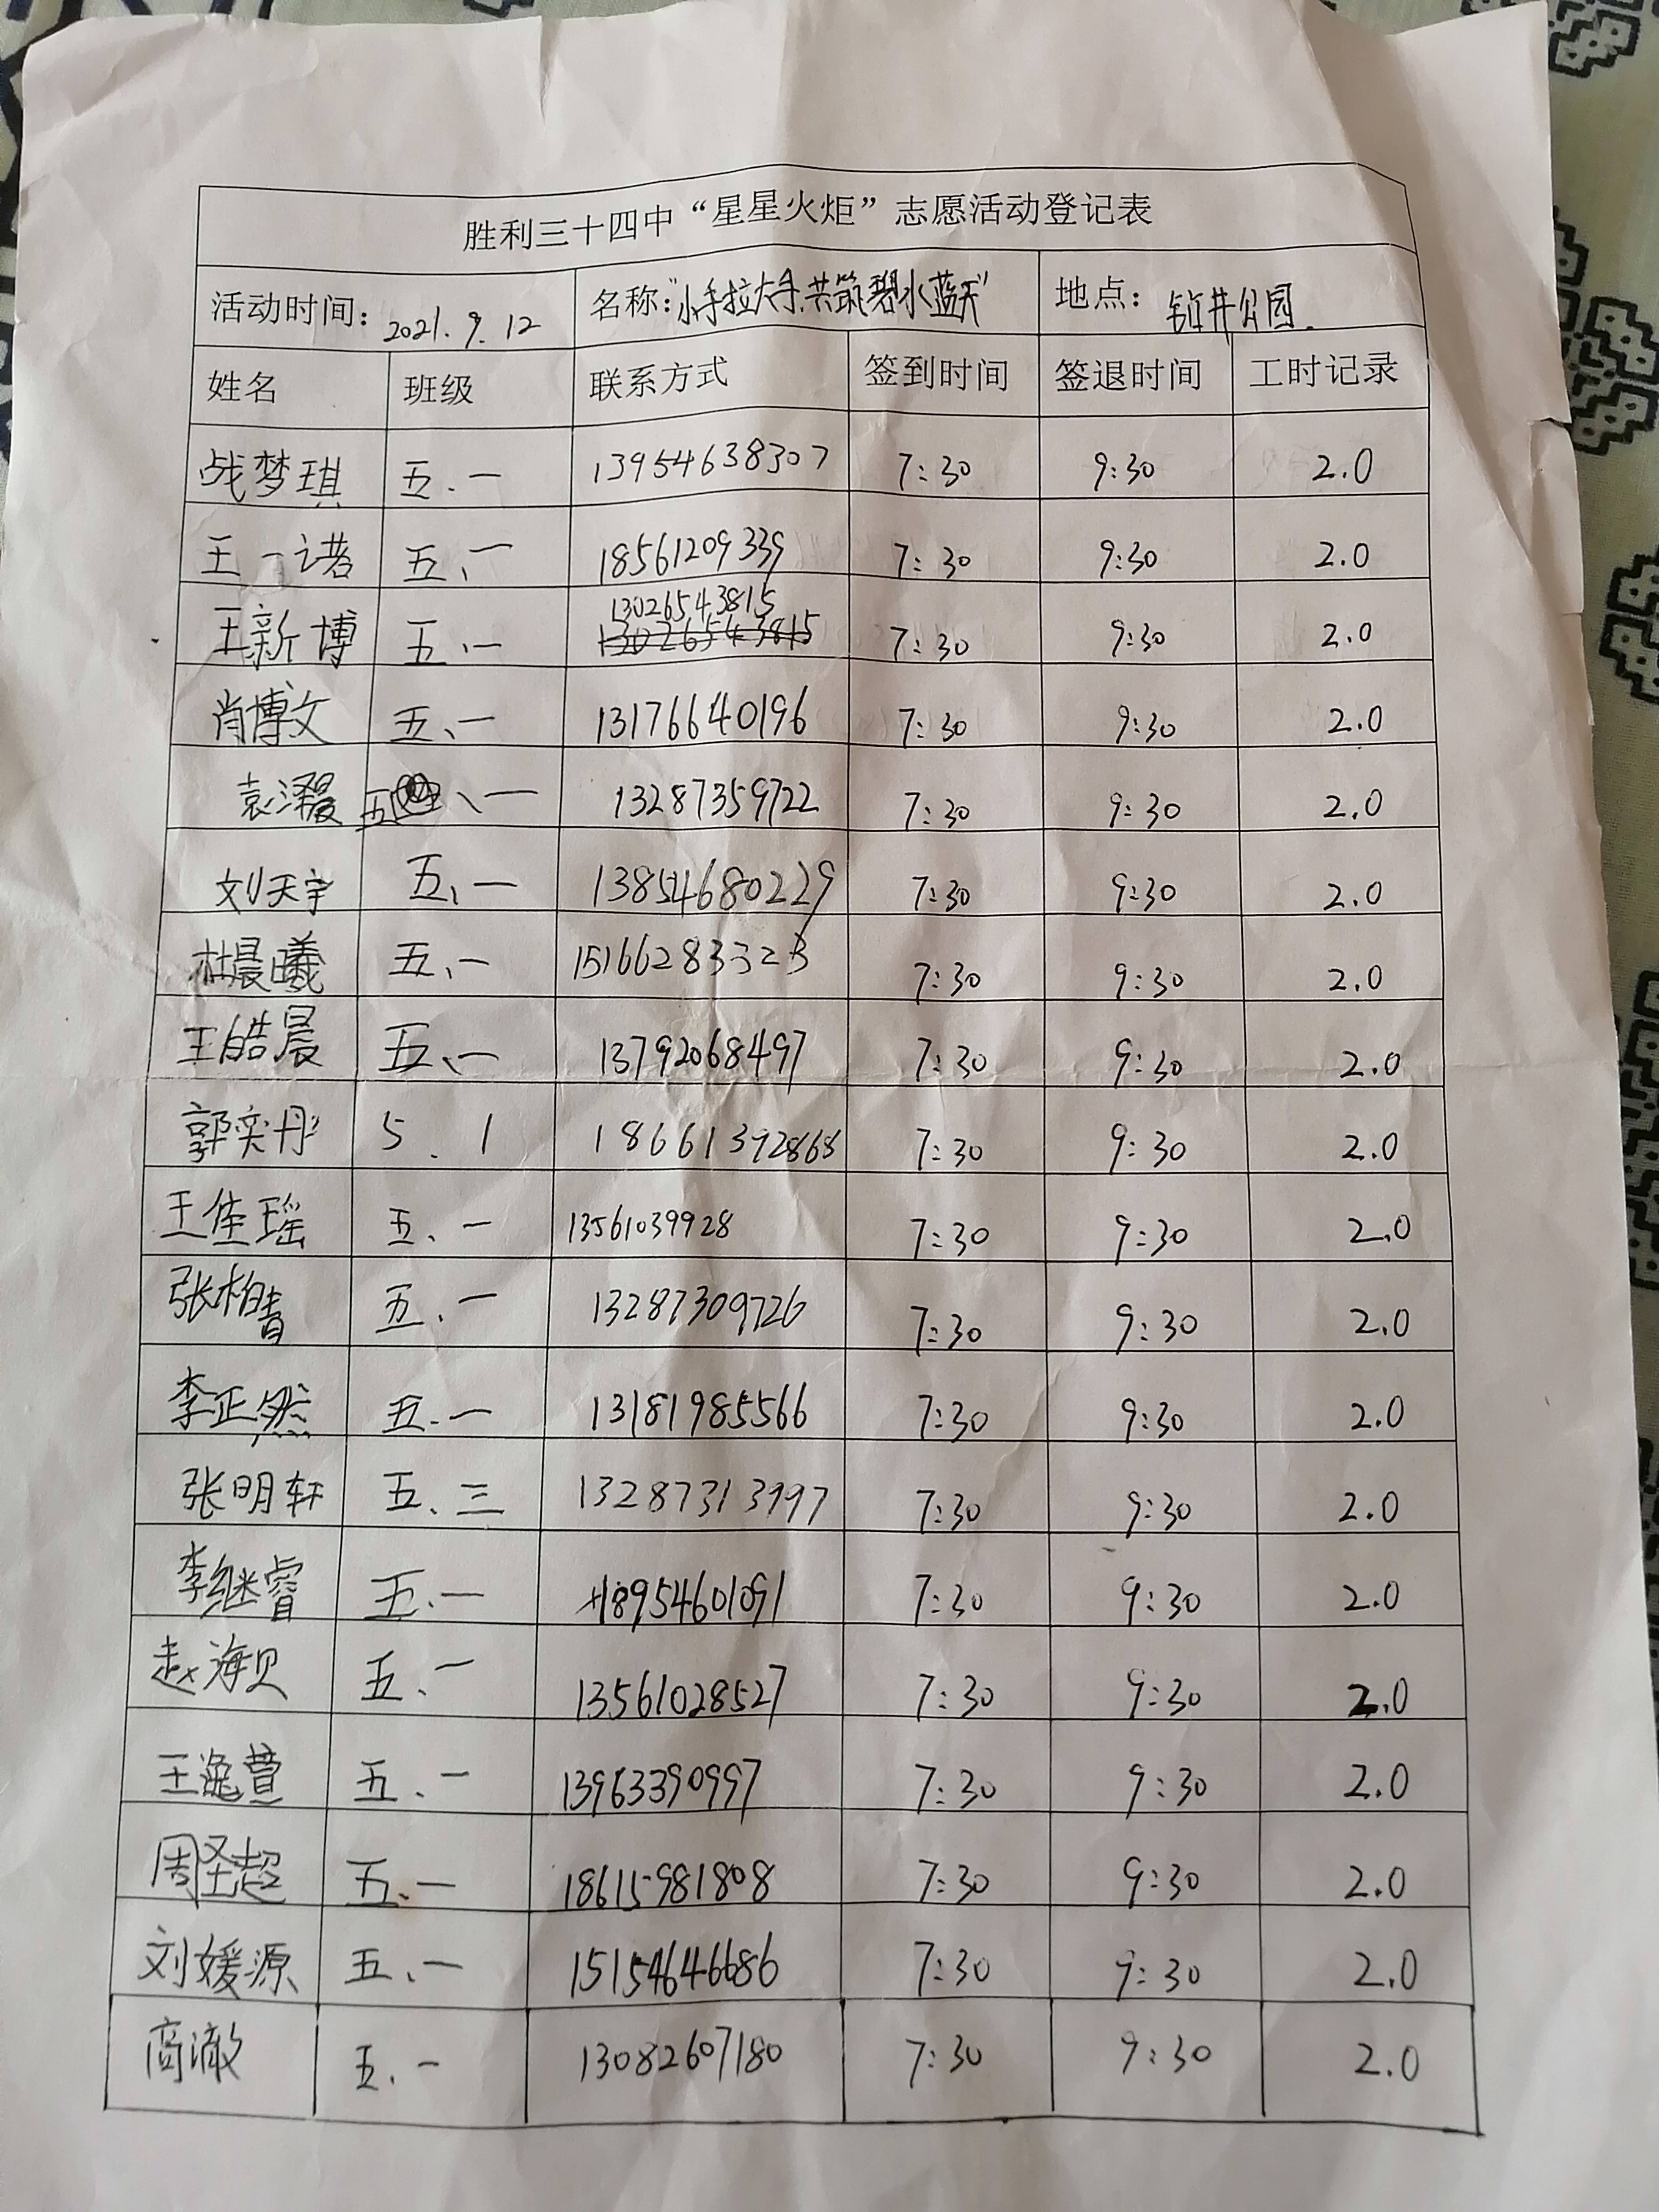 胜利三十四中“星星火炬”志愿活动登记表
活动时间：2021.9.12 名称：“小手拉大手，共筑碧水蓝天” 地点：钻井公园.
姓名 班级 联系方式 签到时间 签退时间 工时记录
战梦琪 五.一 13954638307 7:30 9:30 2.0
王一诺 五、一 18561209339 7:30 9:30 2.0
13026543815
王新博 五、一 13026543815 7:30 9:30 2.0
肖博文 五、一 13176640196 7:30 9:30 2.0
袁 五、一 13287359722 7:30 9:30 2.0
刘天宇 五、一 13854680229 7:30 9:30 2.0
杜晨曦 五、一 15166283323 7:30 9:30 2.0
王皓晨 五、一 13792068497 7:30 9:30 2.0
郭奕彤 5.1 18661392868 7:30 9:30 2.0
王佳瑶 五.一 13561039928 7:30 9:30 2.0
张柏青 五.一 13287309726 7:30 9:30 2.0
李正然 五.一 13181985566 7:30 9:30 2.0
张明轩 五、三 13287313997 7:30 9:30 2.0
李继睿 五.一 18954601091 7:30 9:30 2.0
赵海贝 五.一 13561028527 7:30 9:30 2.0
王逸萱 五.一 13963390997 7:30 9:30 2.0
周圣超 五、一 18615981808 7:30 9:30 2.0
刘媛源 五、一 15154646686 7:30 9:30 2.0
商澈 五.一 13082607180 7:30 9:30 2.0